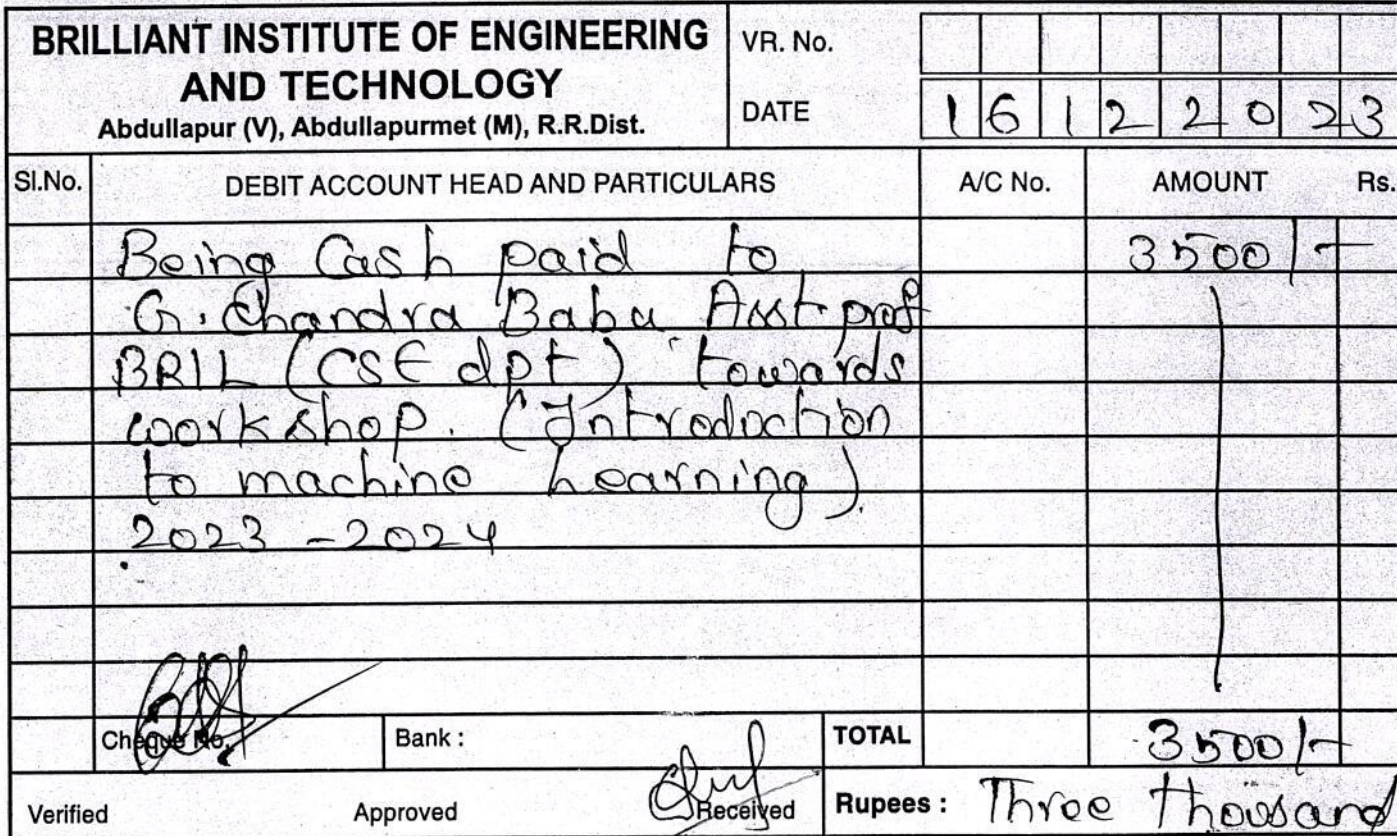 BRILLIANT INSTITUTE OF ENGINEERING
AND TECHNOLOGY
Abdullapur (V), Abdullapurmet (M), R.R.Dist.
VR. No.
DATE 16122023
Sl.No. DEBIT ACCOUNT HEAD AND PARTICULARS A/C No. AMOUNT Rs.
Being Cash paid to 3500/-
G. Chandra Babu Asst prof
BRIL (CSE dpt) towards
workshop. (Introduction
to machine Learning).
2023 - 2024
Cheque No. Bank : TOTAL 3500/-
Verified Approved Received Rupees : Three Thousand